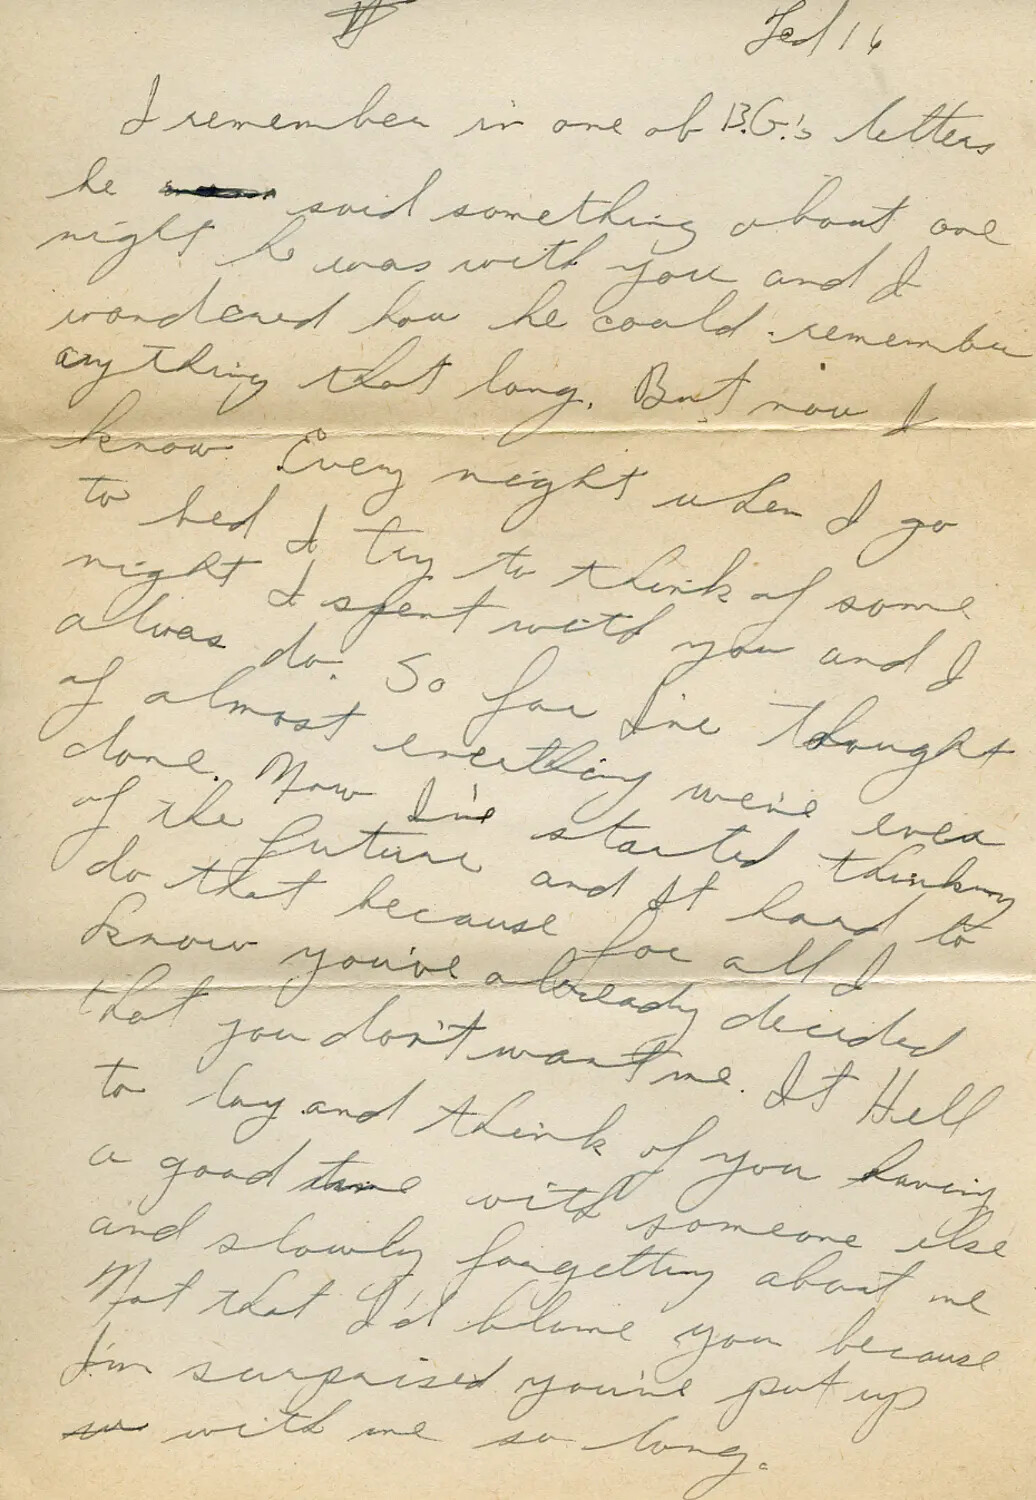 IV Feb 16
I remember in one of B.G.'s letters
he said something about one
night he was with you and I
wondered how he could remember
anything that long. But now I
know. Every night when I go
to bed I try to think of some
night I spent with you and I
alwas do. So far I've thought
of almost everthing we've ever
done. Now I've started thinking
of the future and It hard to
do that because for all I
know you've already decided
that you don't want me. It Hell
to lay and think of you having
a good time with someone else
and slowly forgetting about me
Not that I'd blame you because
I'm surprised you've put up
with me so long.